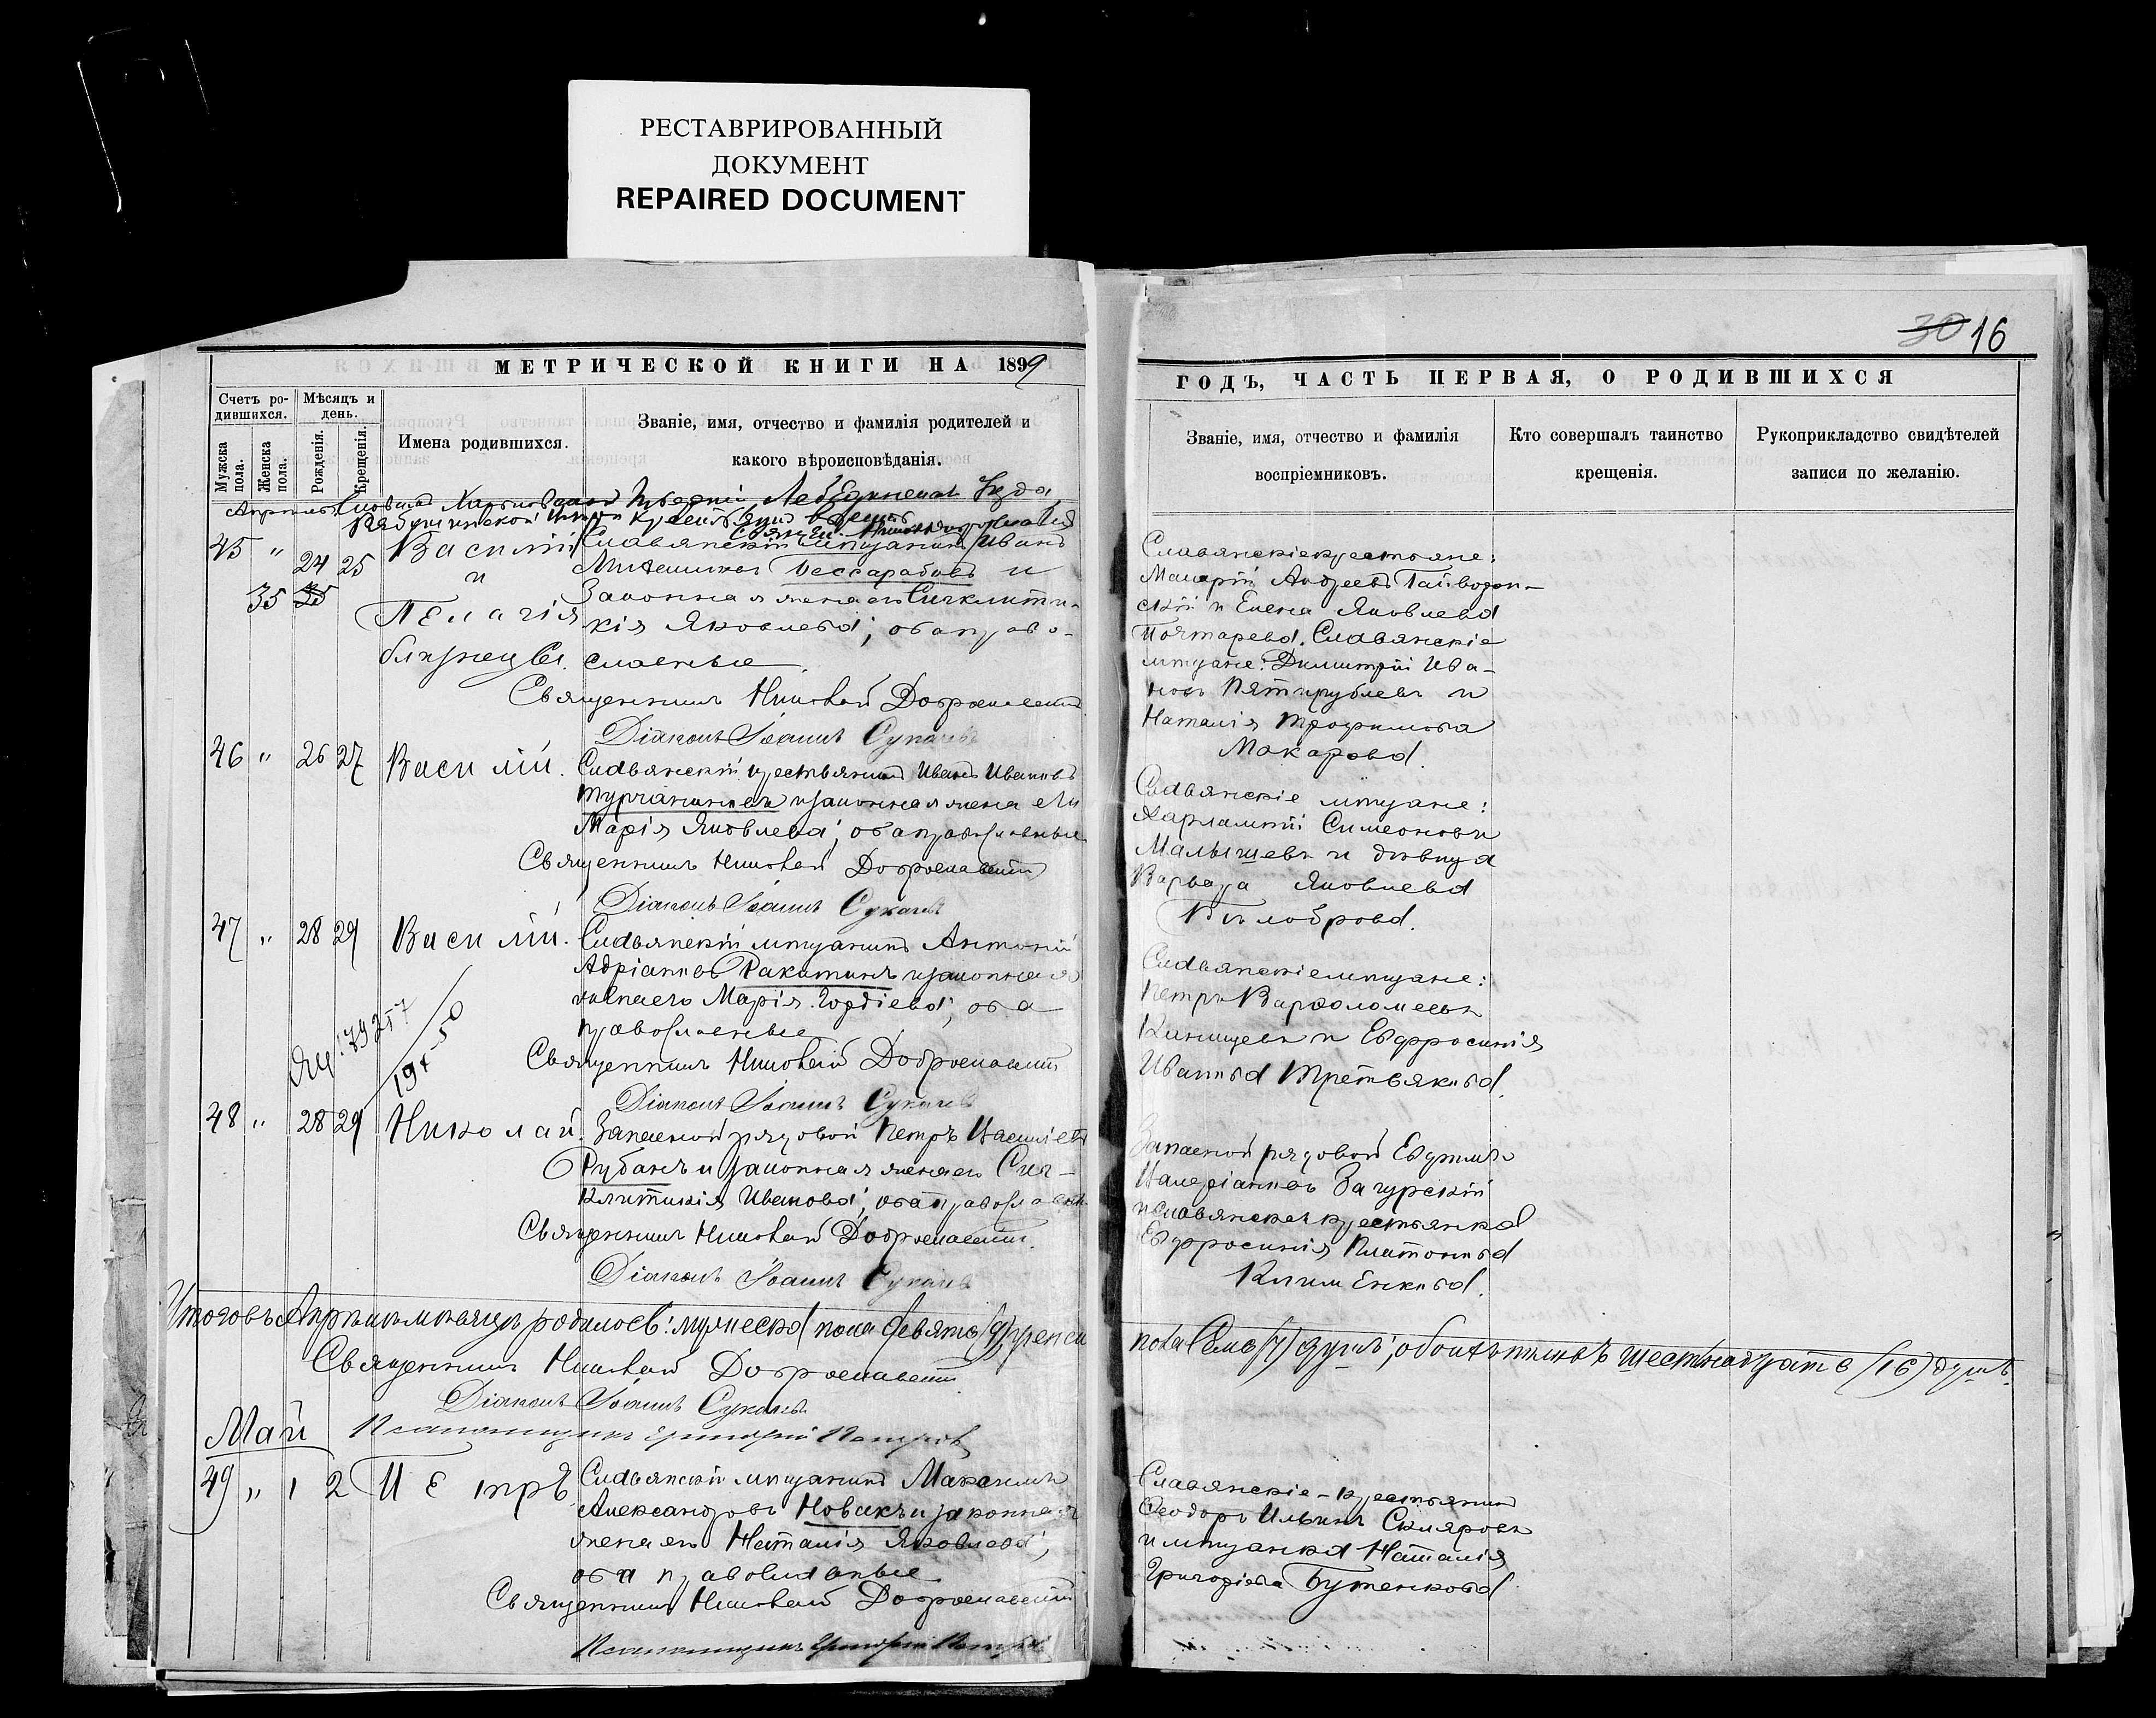 РЕСТАВРИРОВАННЫЙ
ДОКУМЕНТ
REPAIRED DOCUMENT
МЕТРИЧЕСКОЙ КНИГИ НА 1899
Счетъ ро-
дившихся.
Мѣсяцъ и
день.
Мужска
пола.
Женска
пола.
Рожденія.
Крещенія.
Имена родившихся.
Званіе, имя, отчество и фамилія родителей и
какого вѣроисповѣданія.
Харьковской Губерніи Лебединскаго Уѣзда
45 " 24 25 Василій Славянскій мѣщанинъ Иванъ
и Бессарабовъ и
35 25 Законная жена его Синклити-
Пелагія кія Яковлева; оба право-
близнецы. славные.
Священникъ Николай Доброславскій
Діаконъ Іоаннъ Сукачевъ
46 " 26 27 Василій. Славянскій крестьянинъ Иванъ Ивановъ
и законная жена его
Марія Яковлева; оба православные
Священникъ Николай Доброславскій
Діаконъ Іоаннъ Сукачевъ
47 " 28 29 Василій. Славянскій мѣщанинъ Антоній
Адріановъ Ракитинъ и законная
жена его Марія Гордіева; оба
православные
Священникъ Николай Доброславскій
Діаконъ Іоаннъ Сукачевъ
48 " 28 29 Николай. Запасной рядовой Петръ Васильевъ
Рубанъ и законная жена его Син-
клитикія Иванова; оба православн.
Священникъ Николай Доброславскій
Діаконъ Іоаннъ Сукачевъ
Итого въ Апрѣлѣ мѣсяцѣ родилось: мужеска пола девять (9), женска
Священникъ Николай Доброславскій
Діаконъ Іоаннъ Сукачевъ
Май Псаломщикъ Григорій
49 " 1 2 Петръ Славянскій мѣщанинъ Максимъ
Александровъ Новакъ и законная
жена его Наталія Яковлева;
оба православные
Священникъ Николай Доброславскій
Псаломщикъ Григорій
30 16
ГОДЪ, ЧАСТЬ ПЕРВАЯ, О РОДИВШИХСЯ
Званіе, имя, отчество и фамилія
воспріемниковъ.
Кто совершалъ таинство
крещенія.
Рукоприкладство свидѣтелей
записи по желанію.
Славянскіе крестьяне:
Макарій Андреевъ Гайворон-
скій и Елена Яковлева
Почтарева. Славянскіе
мѣщане: Димитрій Ива-
новъ Пятирублевъ и
Наталія Трофимова
Макарова.
Славянскіе мѣщане:
Харлампій Симеоновъ
Малышевъ и дѣвица
Варвара Яковлева
Бѣлоброва.
Славянскіе мѣщане:
Петръ Варфоломеевъ
и Евфросинія
Иванова Третьякова.
Запасной рядовой Евфимъ
Валеріановъ Загурскій
и славянская крестьянка
Евфросинія Платонова
Клименкова.
пола семь (7) душъ; обоихъ половъ шестнадцать (16) душъ.
Славянскіе - крестьянинъ
Ѳеодоръ Ильинъ Скляровъ
и мѣщанка Наталія
Григорьева Бутенкова.